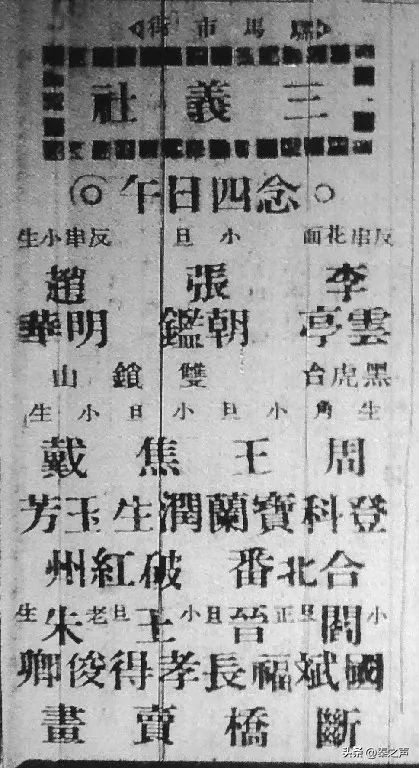 騾馬市街
三義社
念四日午
反串花面 小旦 反串小生
李 張 趙
雲亭 朝鑑 明華
黑虎台 雙鎖山
生角 小旦 小旦 小生
周 王 焦 戴
登科 寶蘭 潤生 玉芳
合北番 破紅州
小旦 正旦 小旦 老生
閻 晉 王 朱
國斌 福長 孝得 俊卿
斷橋 賣畫
头条 @秦之声